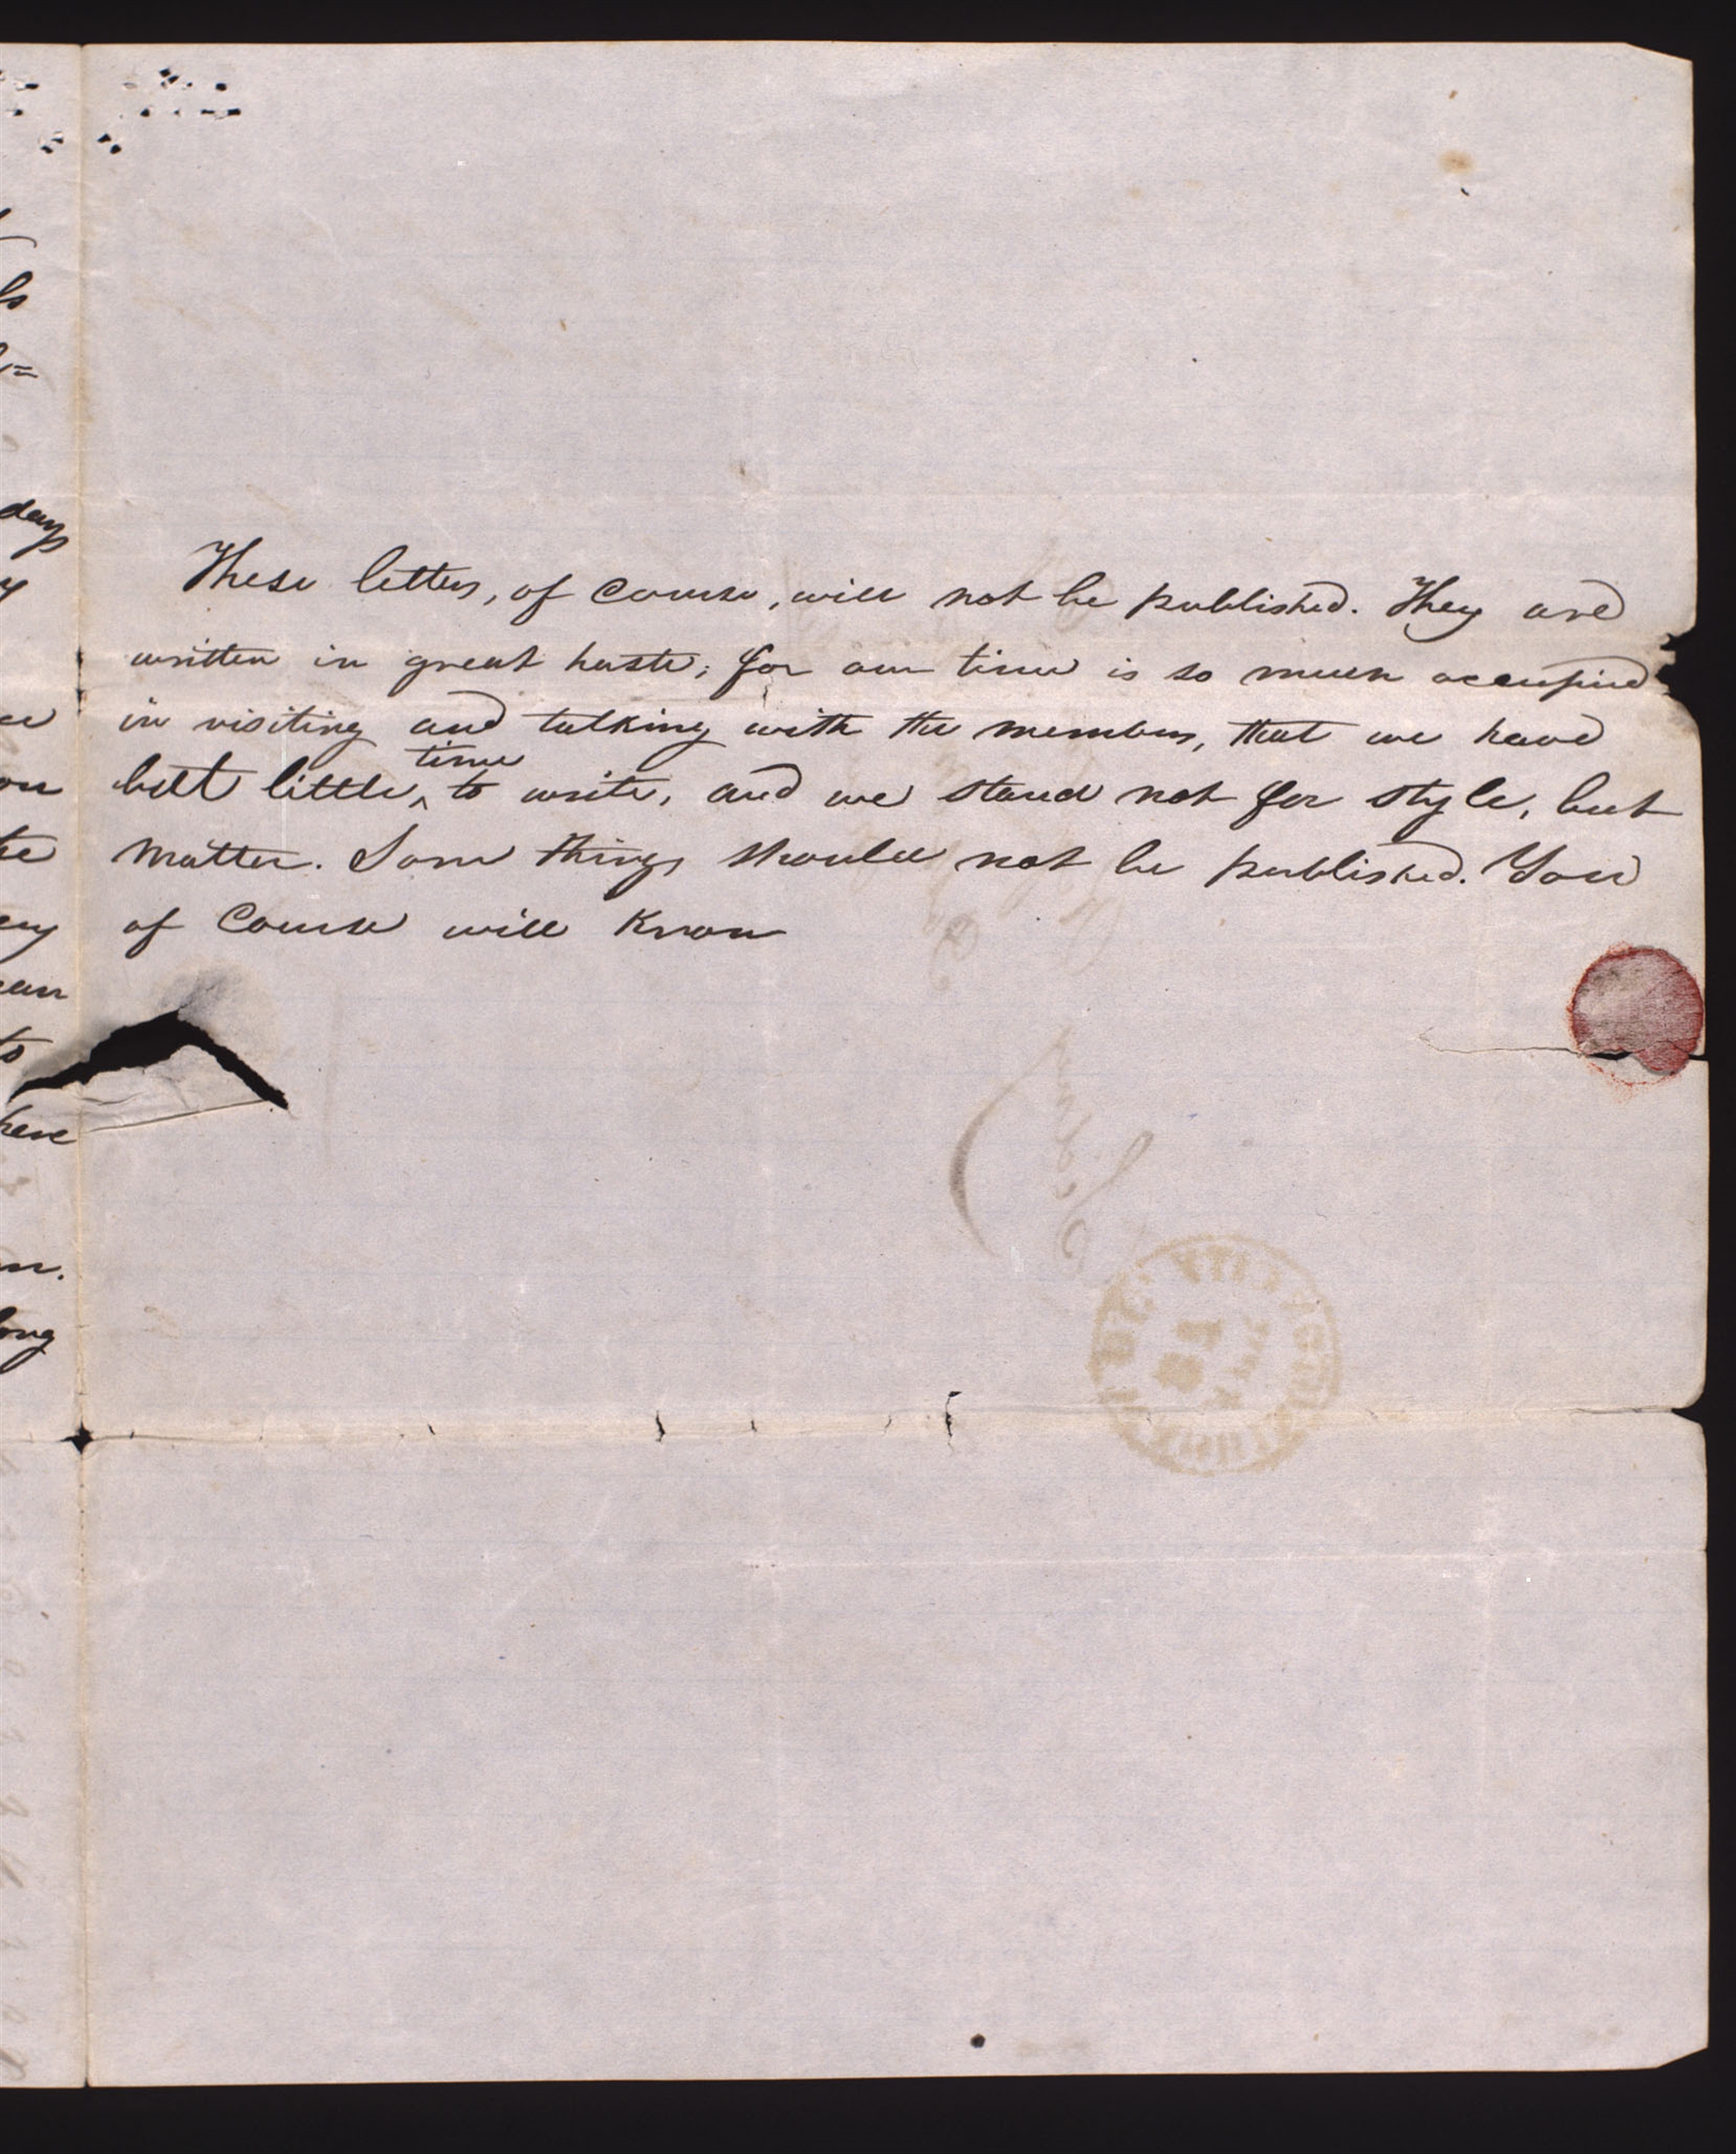 days
here
long
These letters, of course, will not be published. They are
written in great haste; for our time is so much occupied
in visiting and talking with the members, that we have
time
but little ^ to write, and we stand not for style, but
matter. Some things should not be published. You
of course will know